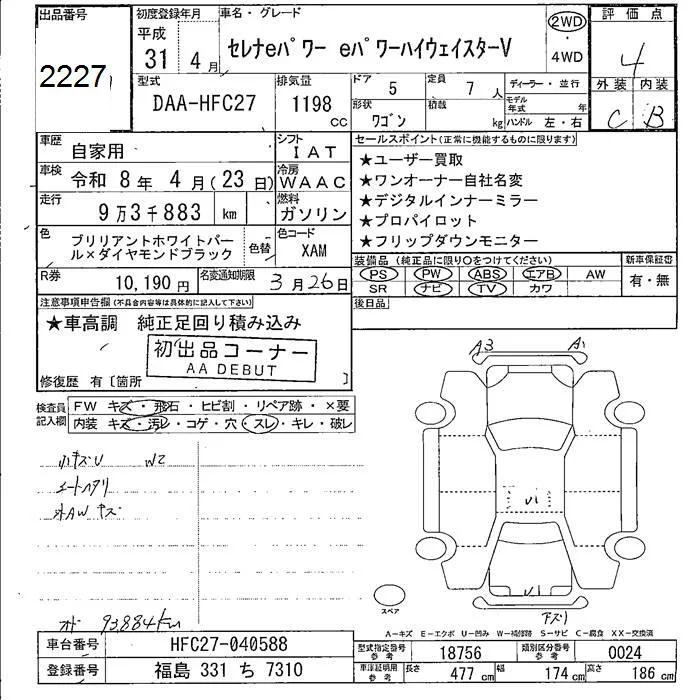 出品番号
2227
初度登録年月
平成
31 4月
車名・グレード
セレナeパワー eパワーハイウェイスターV
2WD
・
4WD
評価点
4
外装 内装
C B
型式
DAA-HFC27
排気量
1198 CC
ドア 5
定員 7 人
形状 ワゴン
積載 kg
ディーラー・並行
モデル年式 年
ハンドル 左・右
車歴 自家用
シフト IAT
車検 令和 8年 4月(23日)
冷房 WAAC
走行 9万3千883 km
燃料 ガソリン
色 ブリリアントホワイトパール×ダイヤモンドブラック
色替
色コード XAM
R券 10,190円
名変通知期限 3月26日
セールスポイント(正常に機能するものに限ります)
★ユーザー買取
★ワンオーナー自社名変
★デジタルインナーミラー
★プロパイロット
★フリップダウンモニター
装備品(純正品に限り○をつけてください)
新車保証書
PS PW ABS エアB AW
SR ナビ TV カワ
有・無
後日品
注意事項申告欄(不具合内容等は具体的に記入して下さい)
★車高調 純正足回り積み込み
初出品コーナー
AA DEBUT
修復歴 有〔箇所 〕
検査員記入欄
FW キズ・飛石・ヒビ割・リペア跡・×要
内装 キズ・汚レ・コゲ・穴・スレ・キレ・破レ
小キズU W2
シートヘタリ
外AWキズ
メーター 93884km
A3 A1
U1
U1
下ズリ
スペア
A-キズ E-エクボ U-凹み W-補修跡 S-サビ C-腐食 XX-交換済
車台番号 HFC27-040588
登録番号 福島 331 ち 7310
型式指定番号 参考 18756
類別区分番号 参考 0024
車庫証明用 参考 長さ 477 cm 幅 174 cm 高さ 186 cm